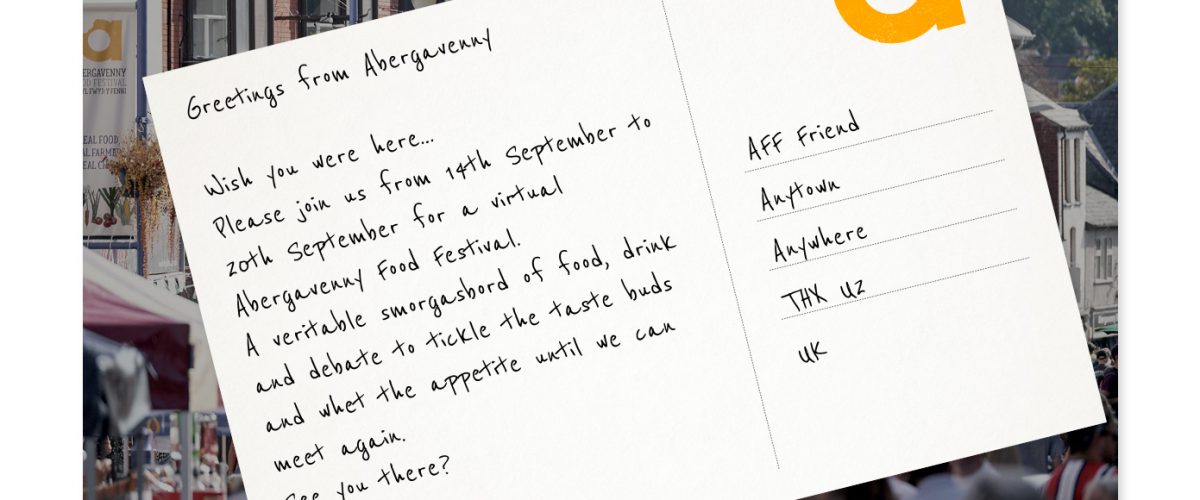 Greetings from Abergavenny
Wish you were here...
Please join us from 14th September to
20th September for a virtual
Abergavenny Food Festival.
A veritable smorgasbord of food, drink
and debate to tickle the taste buds
and whet the appetite until we can
meet again.
See you there?
AFF Friend
Anytown
Anywhere
THX U2
UK
a
ERGAVENNY
OOD FESTIVAL
EAL FOOD
AL FARME
EAL